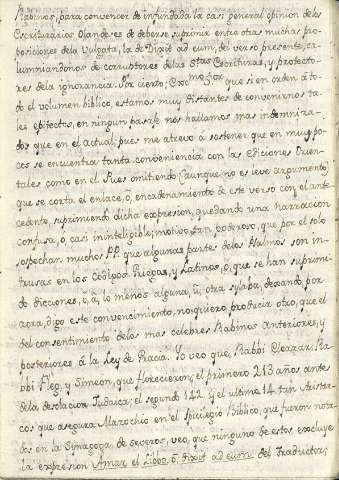 Rabinos, para convencer de infundada la casi general opinion de los
Escriturarios Olandeses de deberse suprimir entre otras muchas pro-
posiciones dela Vulgata, la de Dixit ad eum, del verso presente, ca-
lumniandonos de corruptores de las Stas. Escrituras, y protecto-
res dela ignorancia. Por cierto, Exmo. Sor. que si en orden á to-
do el volumen biblico, estamos muy distantes de convenirnos ta-
les epitectos, en ningun pasaje nos hallamos mas indemniza-
dos que en el actual; pues me atrevo á sostener que en muy po-
ces se encuentra tanta conveniencia con las Ediciones Orien-
tales como en él. Pues omitiendo (aunque no es leve argumento)
que se corta el enlace, ó, encadenamiento de este verso con el ante-
cedente, suprimiendo dicha expresion, quedando una narracion
confusa, ó, casi ininteligible; motivo tan poderoso, que por el solo
sospechan muchos PP. que algunas partes delos Psalmos son in-
trusas en los Codigos Griegos, y Latinos, ó, que se han suprimi-
do dicciones, ó, á lo menos alguna, ú, otra sylaba; dexando por
aora, digo este convencimiento, no quiero producir otro, que el
del consentimiento delos mas celebres Rabinos anteriores, y
posteriores á la Ley de Gracia. Yo veo que, Rabbi Eleazar, Ra-
bbi Aleg, y Simeon, que florecieron, el primero 213 años antes
dela desolacion Judaica; el segundo 142 y el ultimo 14 tan Aristar-
cos que asegura Marochio en el Spicilegio Biblico, que fueron nota-
dos en la Synagoga de severos, veo, que ninguno de estos excluye
la expresion Amar el Libbo, ó, dixit ad eum del Traductor;